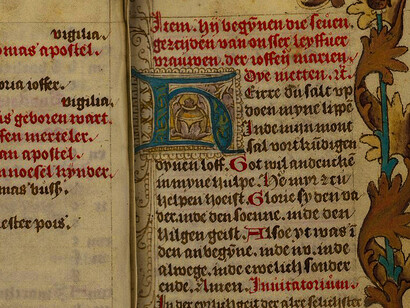 vigilia.
omas apostel.
oria ioffer.
vigilia.
s geboren wart.
ffen merteler.
an apostel.
noesel kynder.
mas buss.
ester pois.
Item. hij begynnen die seuen
getzijden van onsser leyffuer
vrauwen. der ioffen marien.
eirre du salt vp
doen myne lippe
Inde mijn mont
sal vortkundigen
dynen loff. Got wil andencken
in myne hulpe. Here myr tzu
helpen Glorie sy den va
der. inde den soene. inde den
hilgen geist. Alsoe yt was in
den anbegyne. inde nu. inde
alwege. inde ewelich sonder
ende. Amen. Inuitatorium.